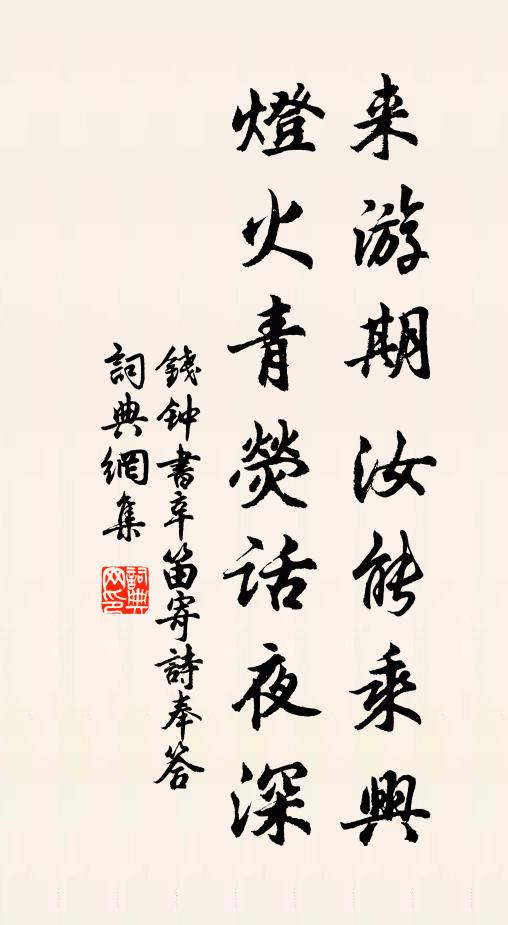 来游期汝能乘興
燈火青熒话夜深
錢钟書辛笛寄詩奉答
詞典網集
詞典
网印